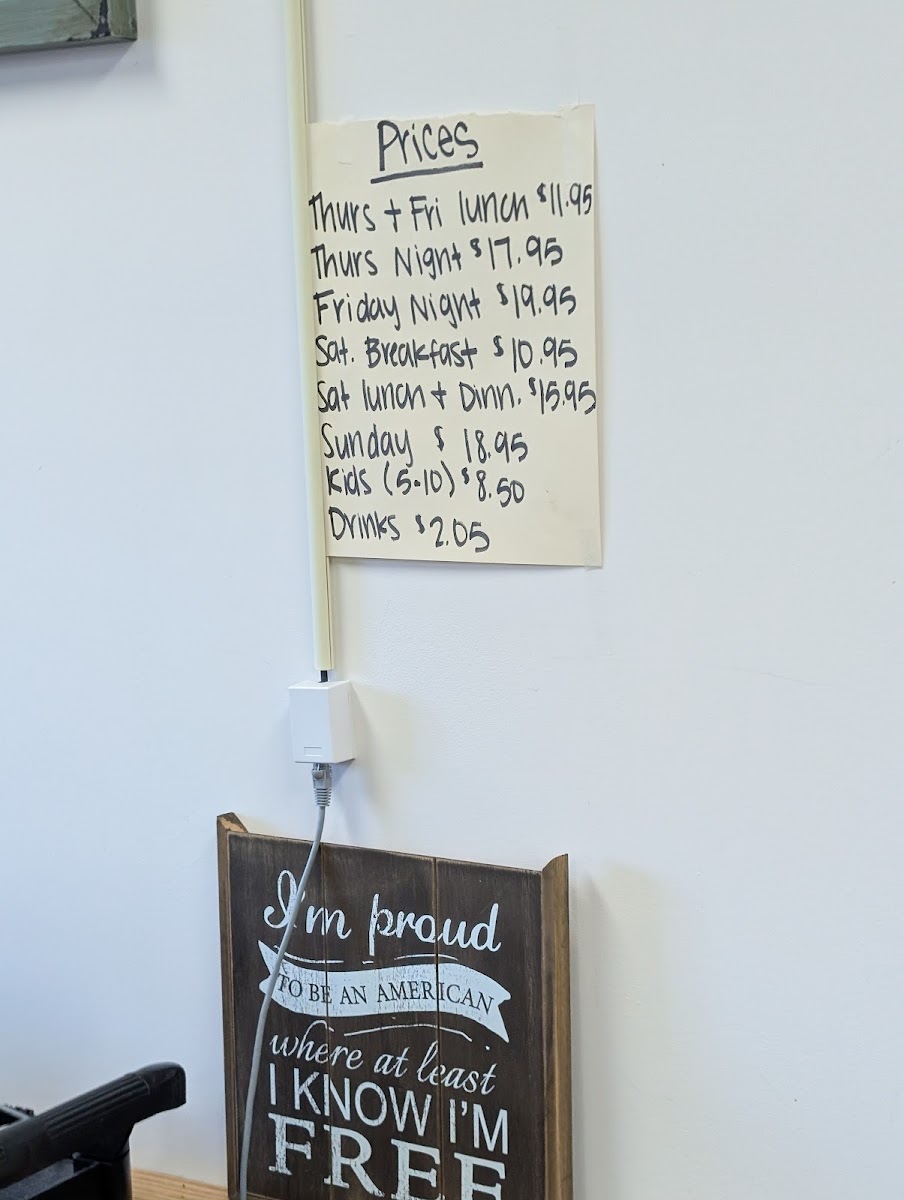 Prices
Thurs + Fri lunch $11.95
Thurs Night $17.95
Friday Night $19.95
Sat. Breakfast $10.95
Sat lunch + Dinn. $15.95
Sunday $18.95
Kids (5-10) $8.50
Drinks $2.05
I'm proud
TO BE AN AMERICAN
where at least
I KNOW I'M
FREE